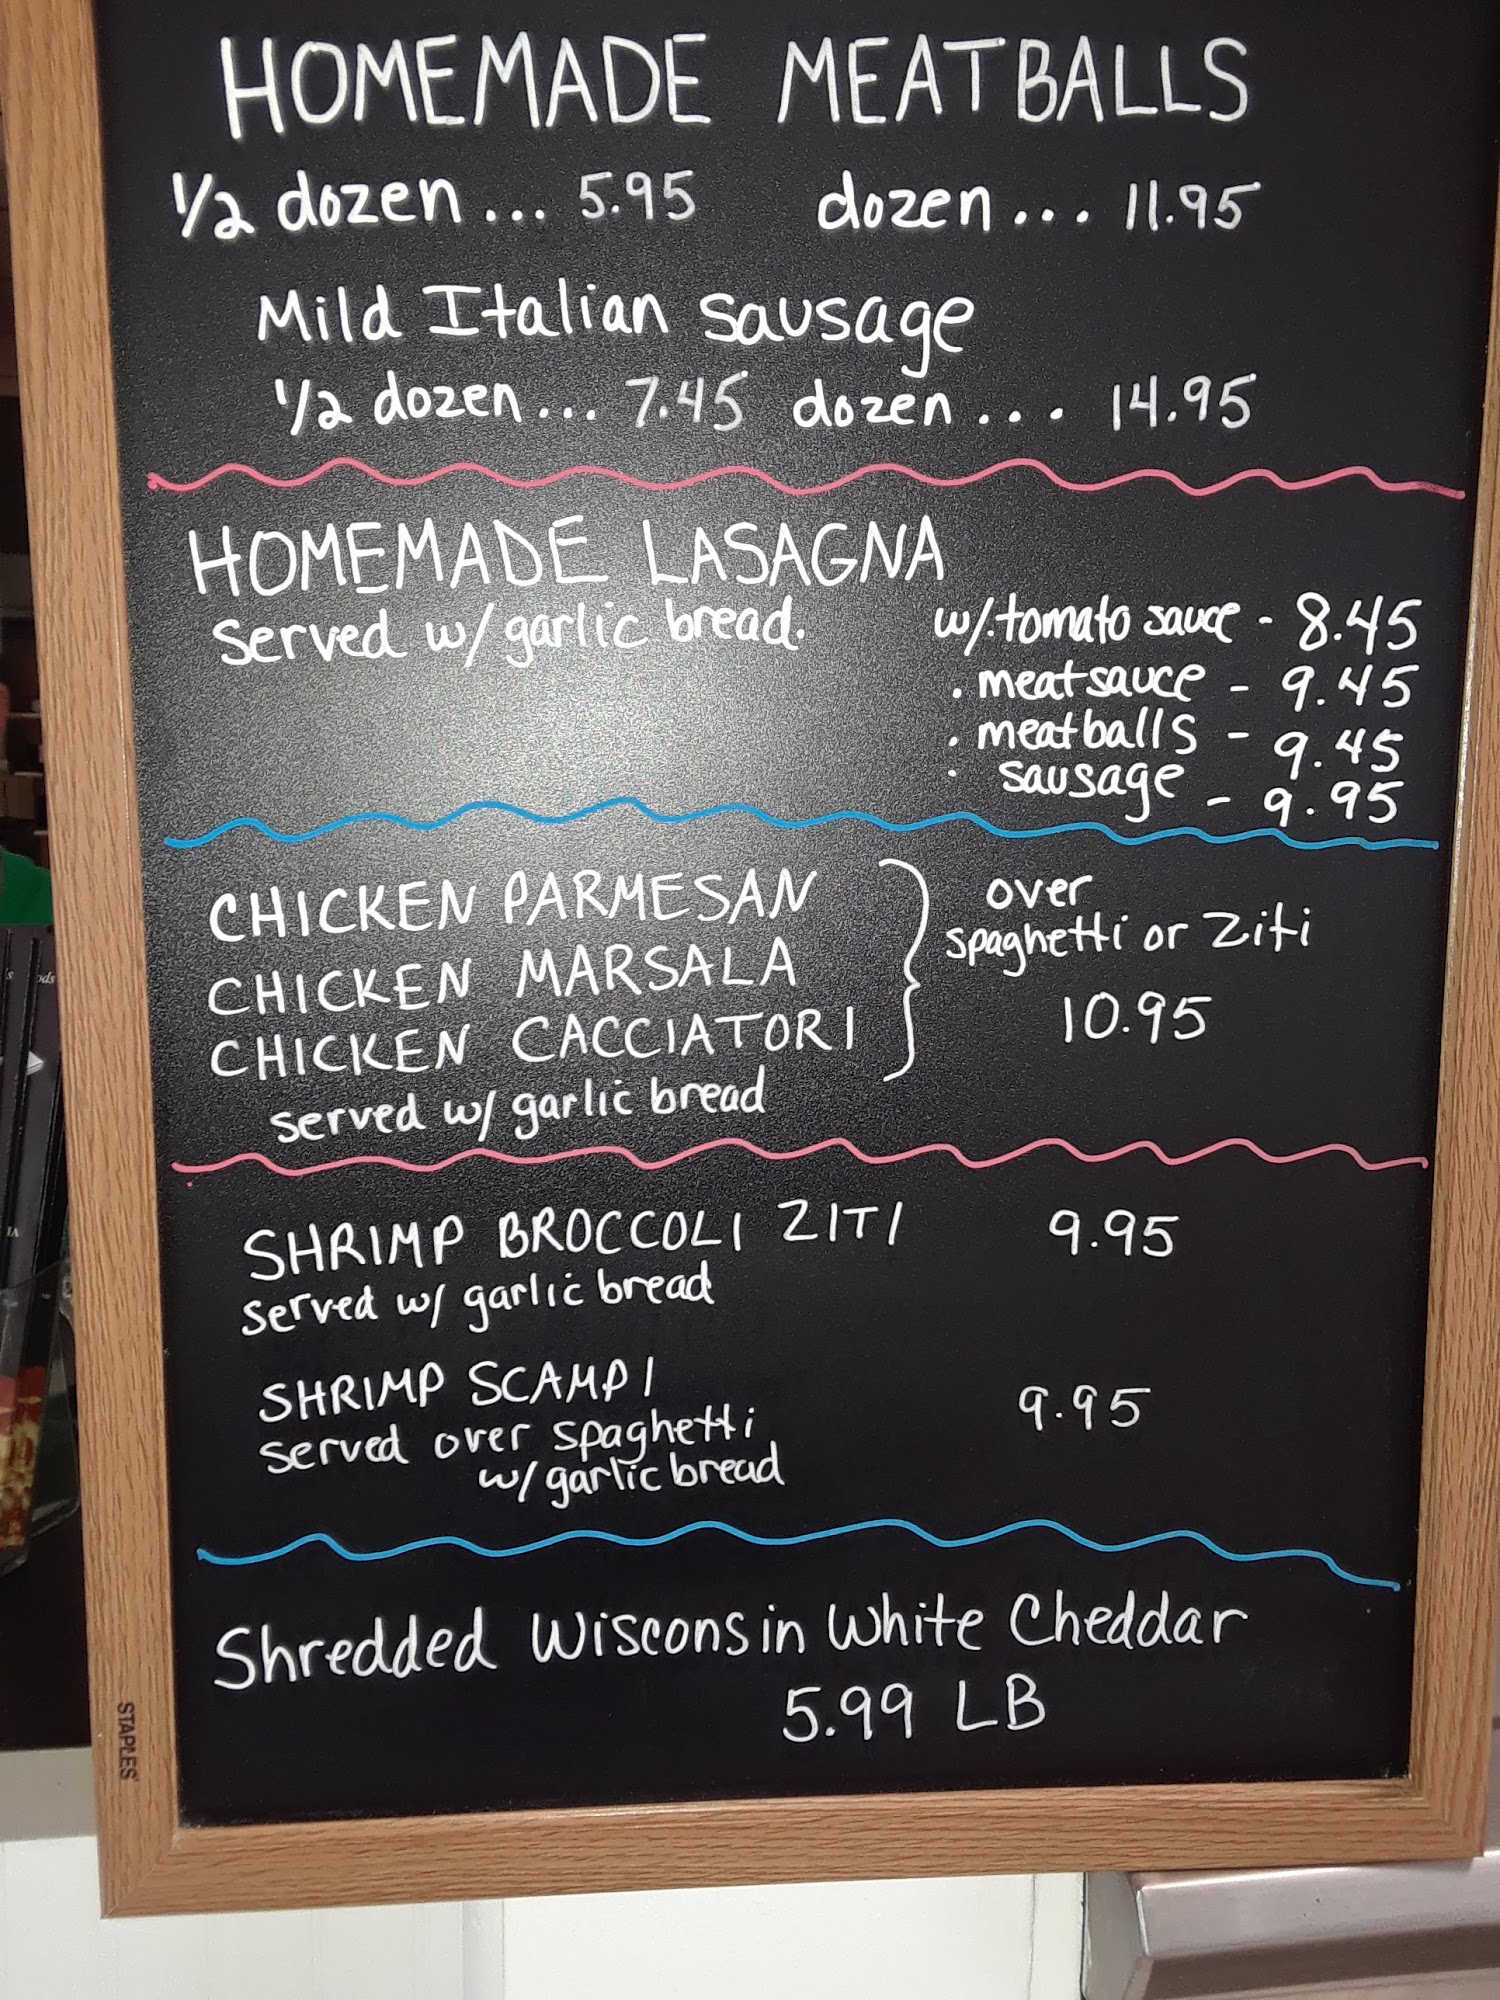 HOMEMADE MEATBALLS
1/2 dozen ... 5.95 dozen ... 11.95
Mild Italian Sausage
1/2 dozen ... 7.45 dozen ... 14.95
HOMEMADE LASAGNA
served w/ garlic bread.
w/. tomato sauce - 8.45
. meat sauce - 9.45
. meatballs - 9.45
. sausage - 9.95
CHICKEN PARMESAN
CHICKEN MARSALA
CHICKEN CACCIATORI
served w/ garlic bread
over
spaghetti or Ziti
10.95
SHRIMP BROCCOLI ZITI 9.95
served w/ garlic bread
SHRIMP SCAMPI 9.95
served over spaghetti
w/ garlic bread
Shredded Wisconsin White Cheddar
5.99 LB
STAPLES